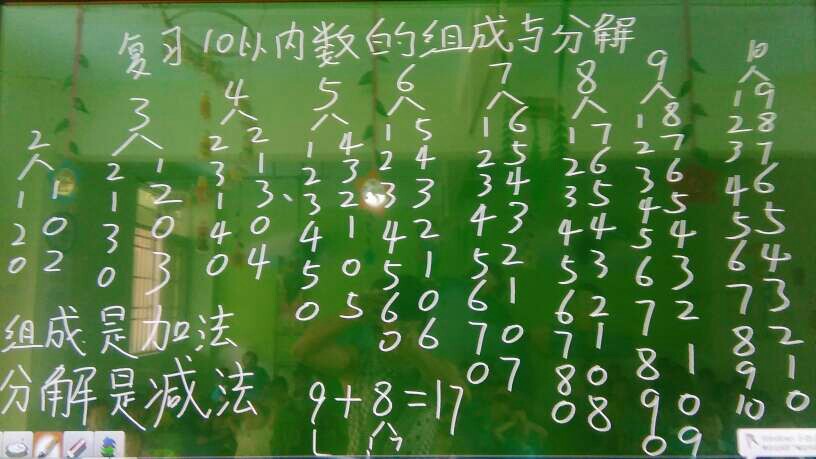 复习10以内数的组成与分解
2
1 1
2 0
0 2
3
2 1
1 2
3 0
0 3
4
2 2
3 1
1 3、
4 0
0 4
5
1 4
2 3
3 2
4 1
5 0
0 5
6
1 5
2 4
3 3
4 2
5 1
6 0
0 6
7
1 6
2 5
3 4
4 3
5 2
6 1
7 0
0 7
8
1 7
2 6
3 5
4 4
5 3
6 2
7 1
8 0
0 8
9
1 8
2 7
3 6
4 5
5 4
6 3
7 2
8 1
9 0
0 9
10
1 9
2 8
3 7
4 6
5 5
6 4
7 3
8 2
9 1
10 0
组成是加法
分解是减法
9+8=17